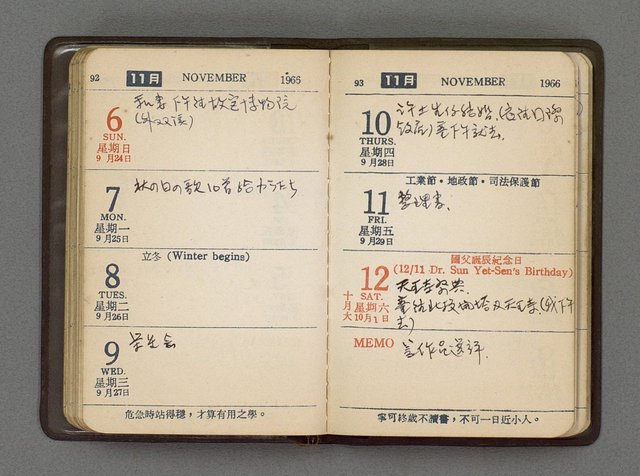 92 11月 NOVEMBER 1966
6
SUN.
星期日
9月24日
和妻下午往故宮博物院
(外双溪)
7
MON.
星期一
9月25日
秋の日の歌10首
立冬 (Winter begins)
8
TUES.
星期二
9月26日
9
WED.
星期三
9月27日
学生会
危急時站得穩，才算有用之學。
93 11月 NOVEMBER 1966
10
THURS.
星期四
9月28日
結婚
工業節·地政節·司法保護節
11
FRI.
星期五
9月29日
整理書、
國父誕辰紀念日
(12/11 Dr. Sun Yet-Sen's Birthday)
12
SAT.
十月大
星期六
10月1日
MEMO
作品選評.
寧可終歲不讀書，不可一日近小人。